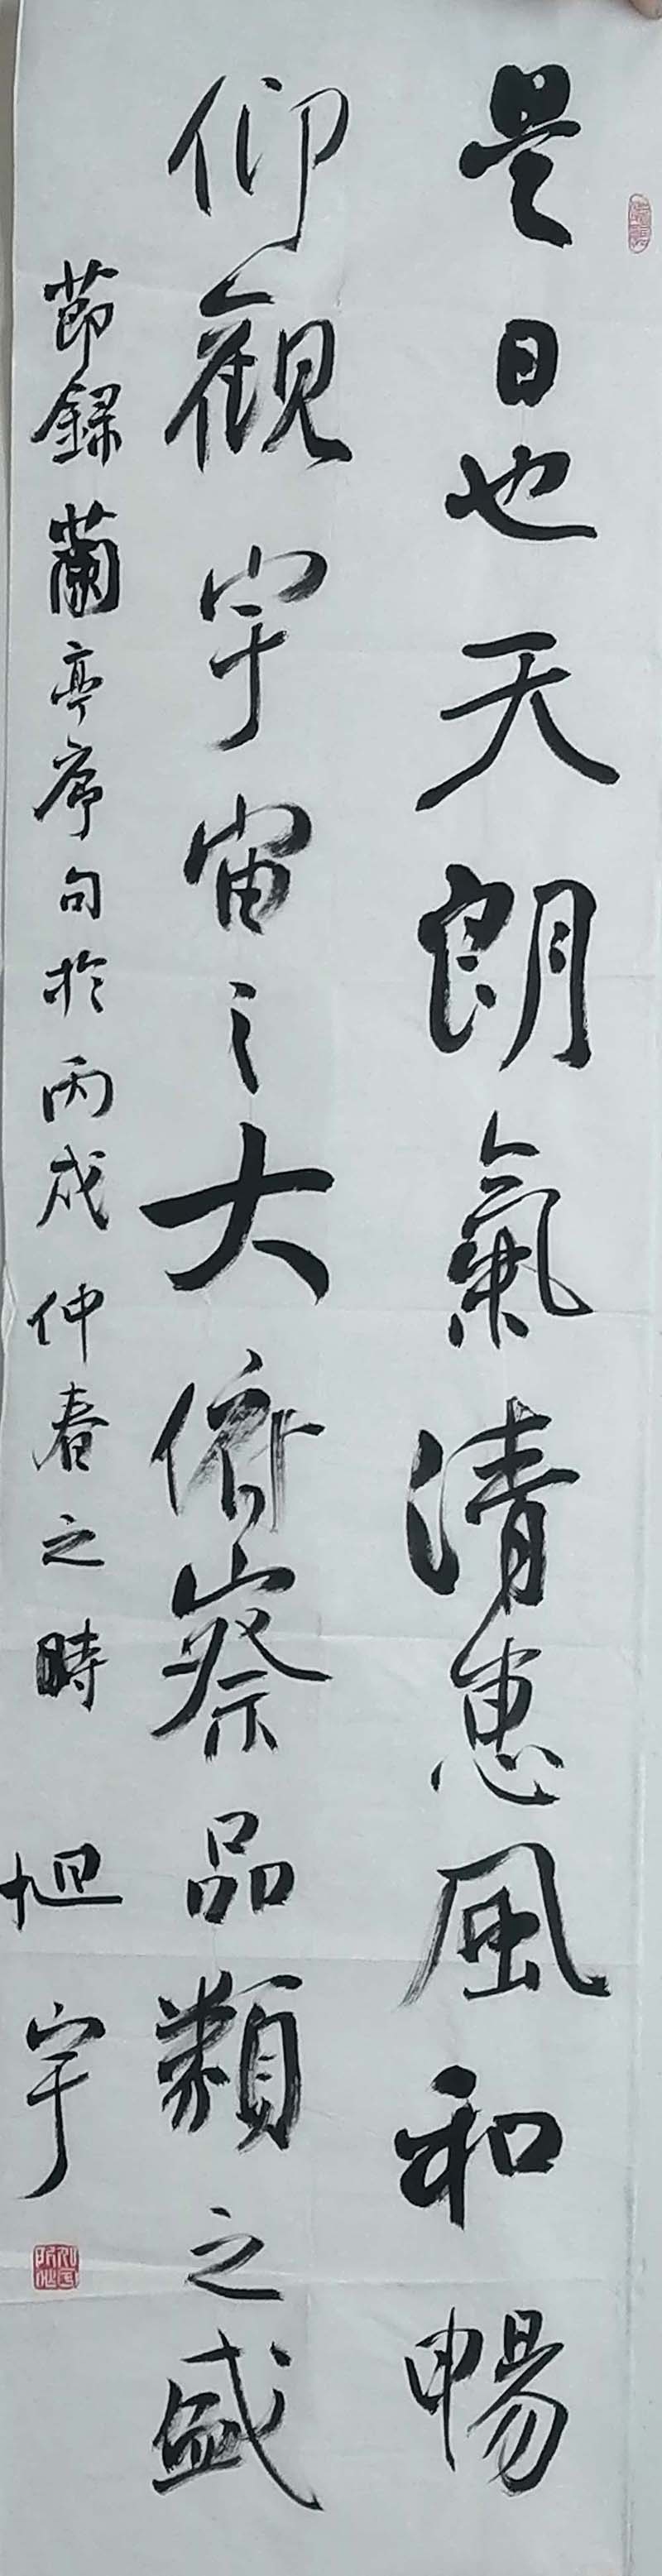 是日也天朗氣清惠風和暢
仰觀宇宙之大俯察品類之盛
節錄蘭亭序句於丙戌仲春之時
旭宇